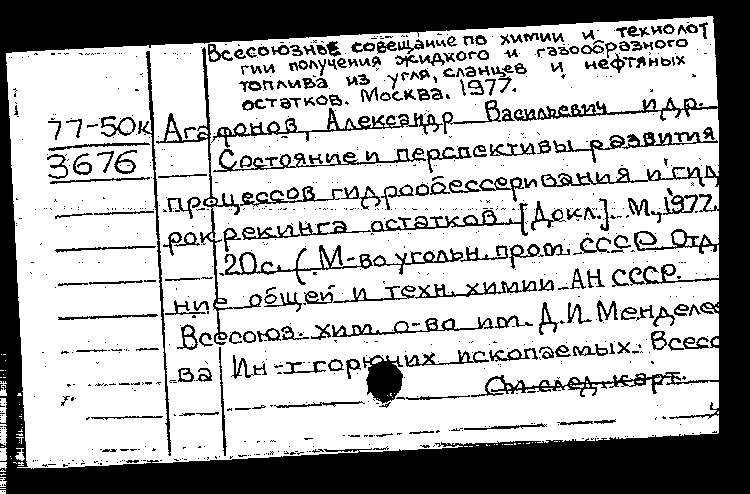 Всесоюзное совещание по химии и технолог
гии получения жидкого и газообразного
топлива из угля, сланцев и нефтяных
остатков. Москва. 1977.
77-50к Агафонов, Александр Васильевич и др.
3676 Состояние и перспективы развития
процессов гидрообессеривания и гид
рокрекинга остатков. [Докл.]. М., 1977.
20с. (М-во угольн. пром. СССР. Отд.
ние общей и техн. химии АН СССР.
Всесоюз. хим. о-во им. Д.И. Менделее
ва Ин-т горючих ископаемых. Всесо
См. след. карт.